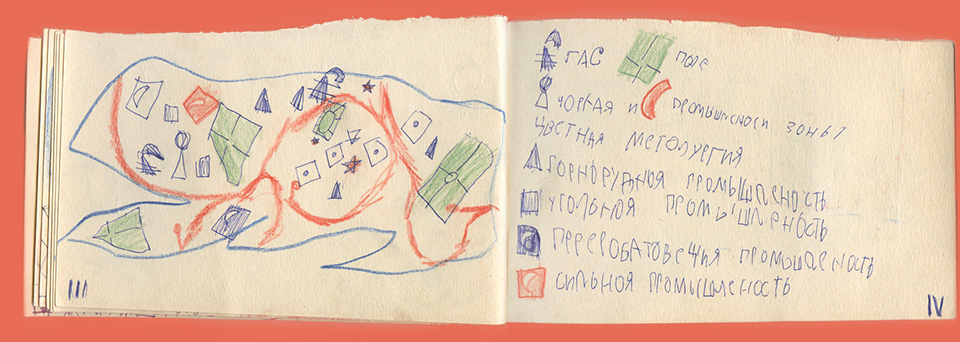 ГАС поле
чорная и промышлености зоны
цветная метолургия
горнорудная промышленость
угольная промышленость
перероботовсчия промышленость
сильноя промышленость
III
IV